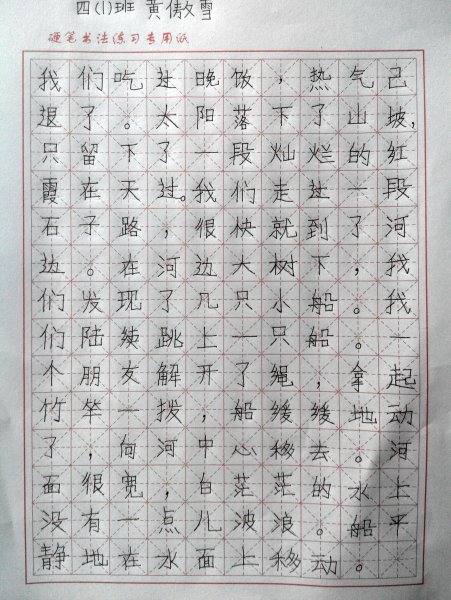 四(1)班 黄傲雪
硬笔书法练习专用纸
我们吃过晚饭，热气已
退了。太阳落下了山坡，
只留下了一段灿烂的红
霞在天边。我们走过一段
石子路，很快就到了河
边。在河边大树下，我
们发现了几只小船。我
们陆续跳上一只船。一
个朋友解开了绳，拿起
竹竿一拨，船缓缓地动
了，向河中心移去。河
面很宽，白茫茫的水上
没有一点儿波浪。船平
静地在水面上移动。